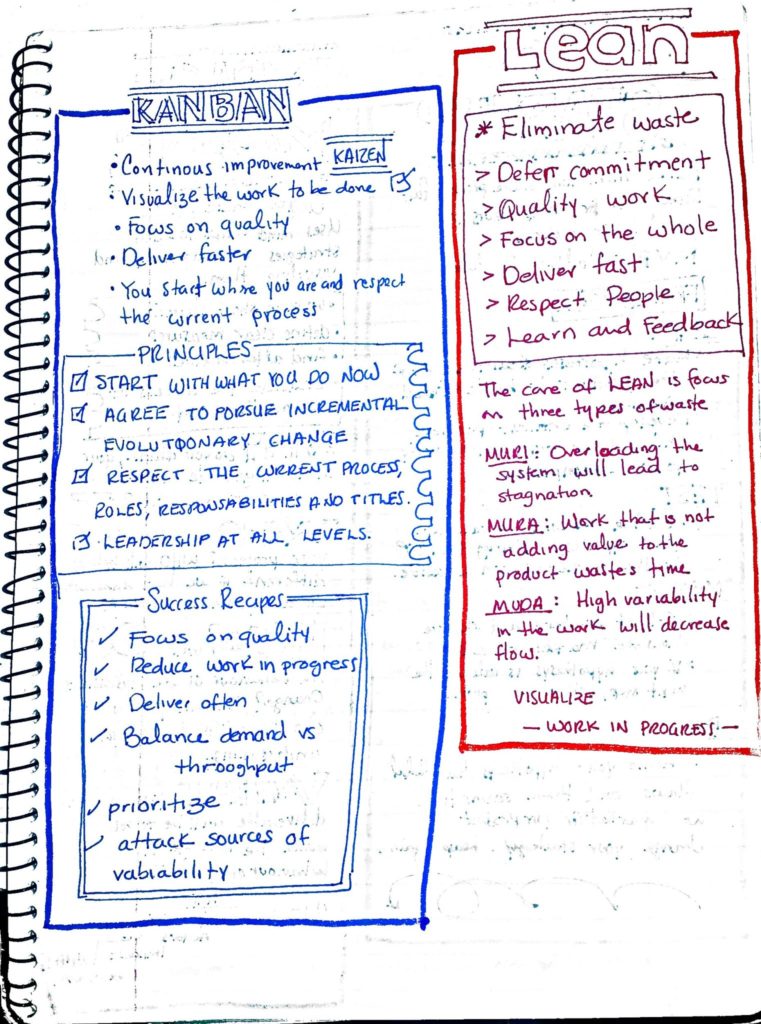 KANBAN
• Continous improvement KAIZEN
• Visualize the work to be done
• Focus on quality
• Deliver faster
• You start where you are and respect
the current process
PRINCIPLES
START WITH WHAT YOU DO NOW
AGREE TO PORSUE INCREMENTAL
EVOLUTIONARY CHANGE
RESPECT THE CURRENT PROCESS,
ROLES, RESPONSABILITIES AND TITLES.
LEADERSHIP AT ALL LEVELS.
Success Recipes
✓ Focus on quality
✓ Reduce work in progress
✓ Deliver often
✓ Balance demand vs
throoghput
✓ prioritize
✓ attack sources of
vabiability
Lean
* Eliminate waste
> Deferr commitment
> Quality work
> Focus on the whole
> Deliver fast
> Respect People
> Learn and Feedback
The core of LEAN is focus
on three types of waste
MURI: Overloading the
system will lead to
stagnation
MURA: Work that is not
adding value to the
product wastes time
MUDA: High variability
in the work will decrease
flow.
VISUALIZE
— WORK IN PROGRESS. —